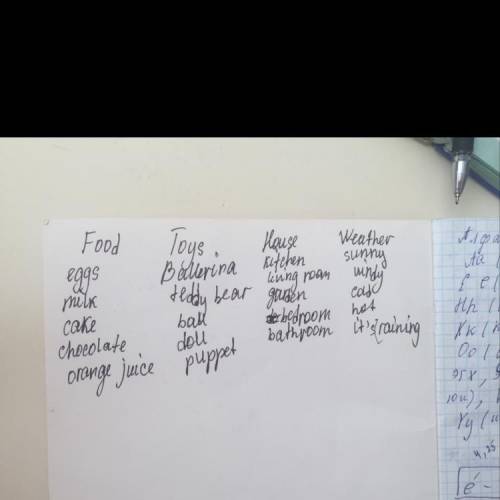 Food Toys House Weather
eggs Ballerina kitchen sunny
milk teddy bear living room windy
cake ball garden cold
chocolate doll bedroom hot
orange juice puppet bathroom it's raining
Аа (
Нн (
Кк (
Оо (